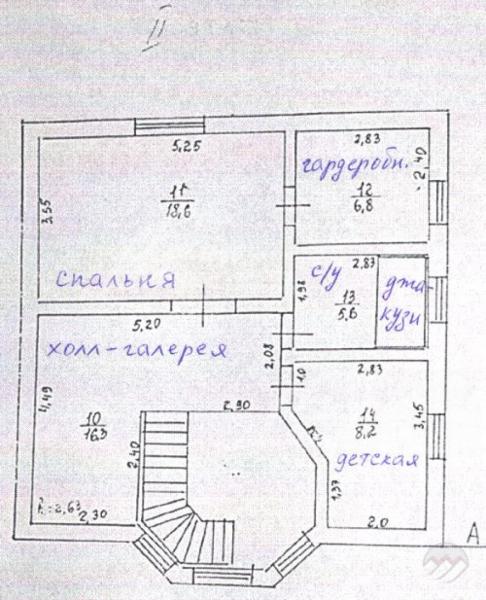 II
5,25
2,83
гардеробн.
2,40
3,55
11
18,6
12
6,8
спальня
с/у
2,83
1,98
13
5,6
джа
кузи
5,20
холл-галерея
2,08
1,0
2,83
4,49
10
16,3
2,90
14
8,2
3,45
2,40
детская
1,37
h=2,63
2,30
2,0
А